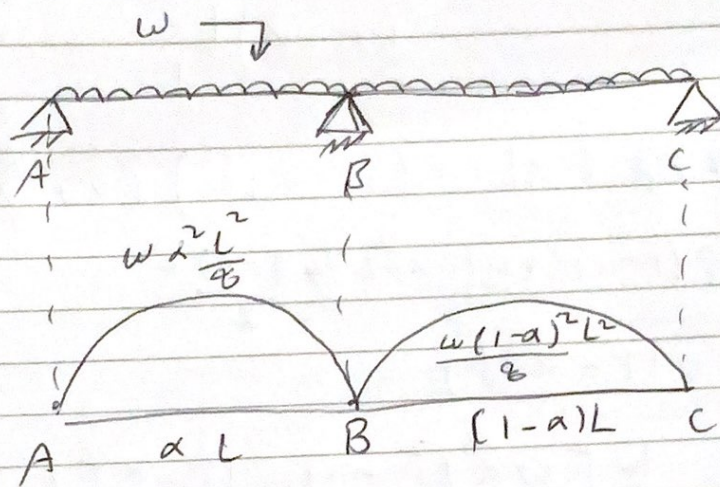 w
A B C
wα²L²/8
w(1-α)²L²/8
A αL B (1-α)L C